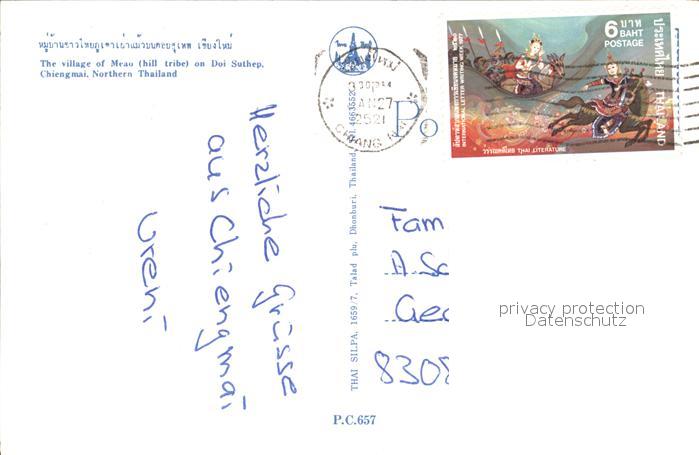 หมู่บ้านชาวไทยภูเขาเผ่าแม้วบนดอยสุเทพ เชียงใหม่
The village of Meao (hill tribe) on Doi Suthep,
Chiengmai, Northern Thailand
Herzliche Grüsse
aus Chiengmai
Vreni
THAI SILPA, 1659/7, Talad plu, Dhonburi, Thailand,
P.C.657
CHIANG MAI
27
2521
6 บาท
BAHT
POSTAGE
ประเทศไทย
THAILAND
INTERNATIONAL LETTER WRITING WEEK 1977
วรรณคดีไทย THAI LITERATURE
Fam
A. Sc
Ged
8308
privacy protection
Datenschutz